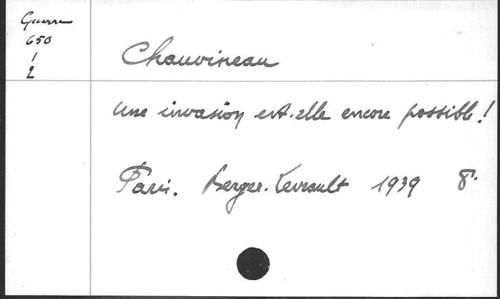 Guerre
650
1
2
Chauvineau
Une invasion est-elle encore possible!
Paris. Berger-Levrault 1939 8°.